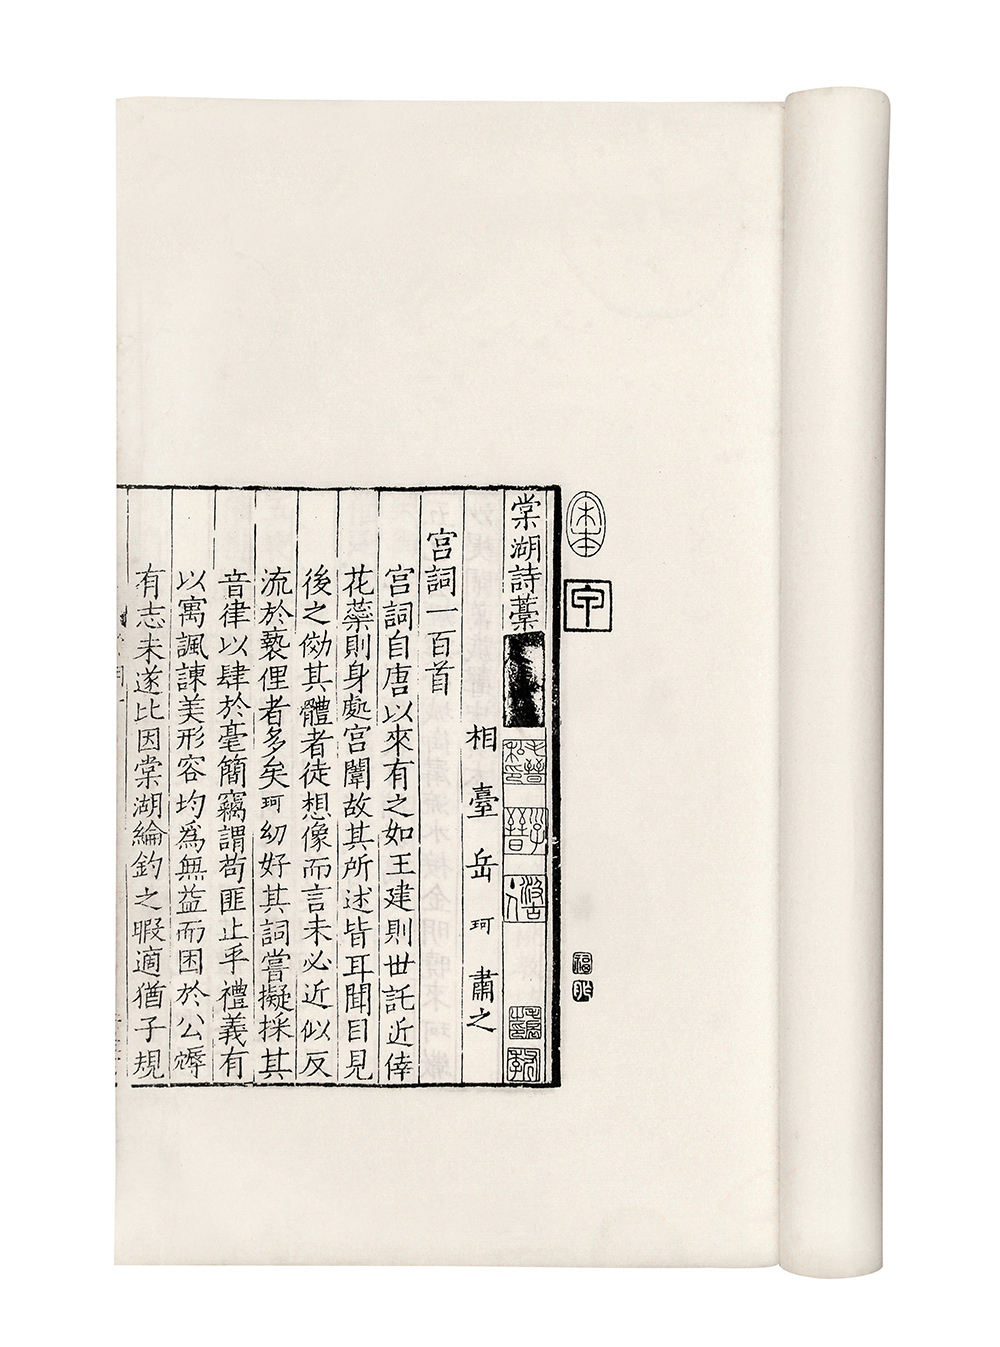 棠湖詩藁
相臺岳珂肅之
宮詞一百首
宮詞自唐以來有之如王建則世託近倖
花蘂則身處宮闈故其所述皆耳聞目見
後之傚其體者徒想像而言未必近似反
流於褻俚者多矣珂幼好其詞嘗擬採其
音律以肆於毫簡竊謂苟匪止乎禮義有
以寓諷諫美形容均為無益而困於公
有志未遂比因棠湖綸釣之暇適猶子規
宋本
甲
毛晉私印
子晉